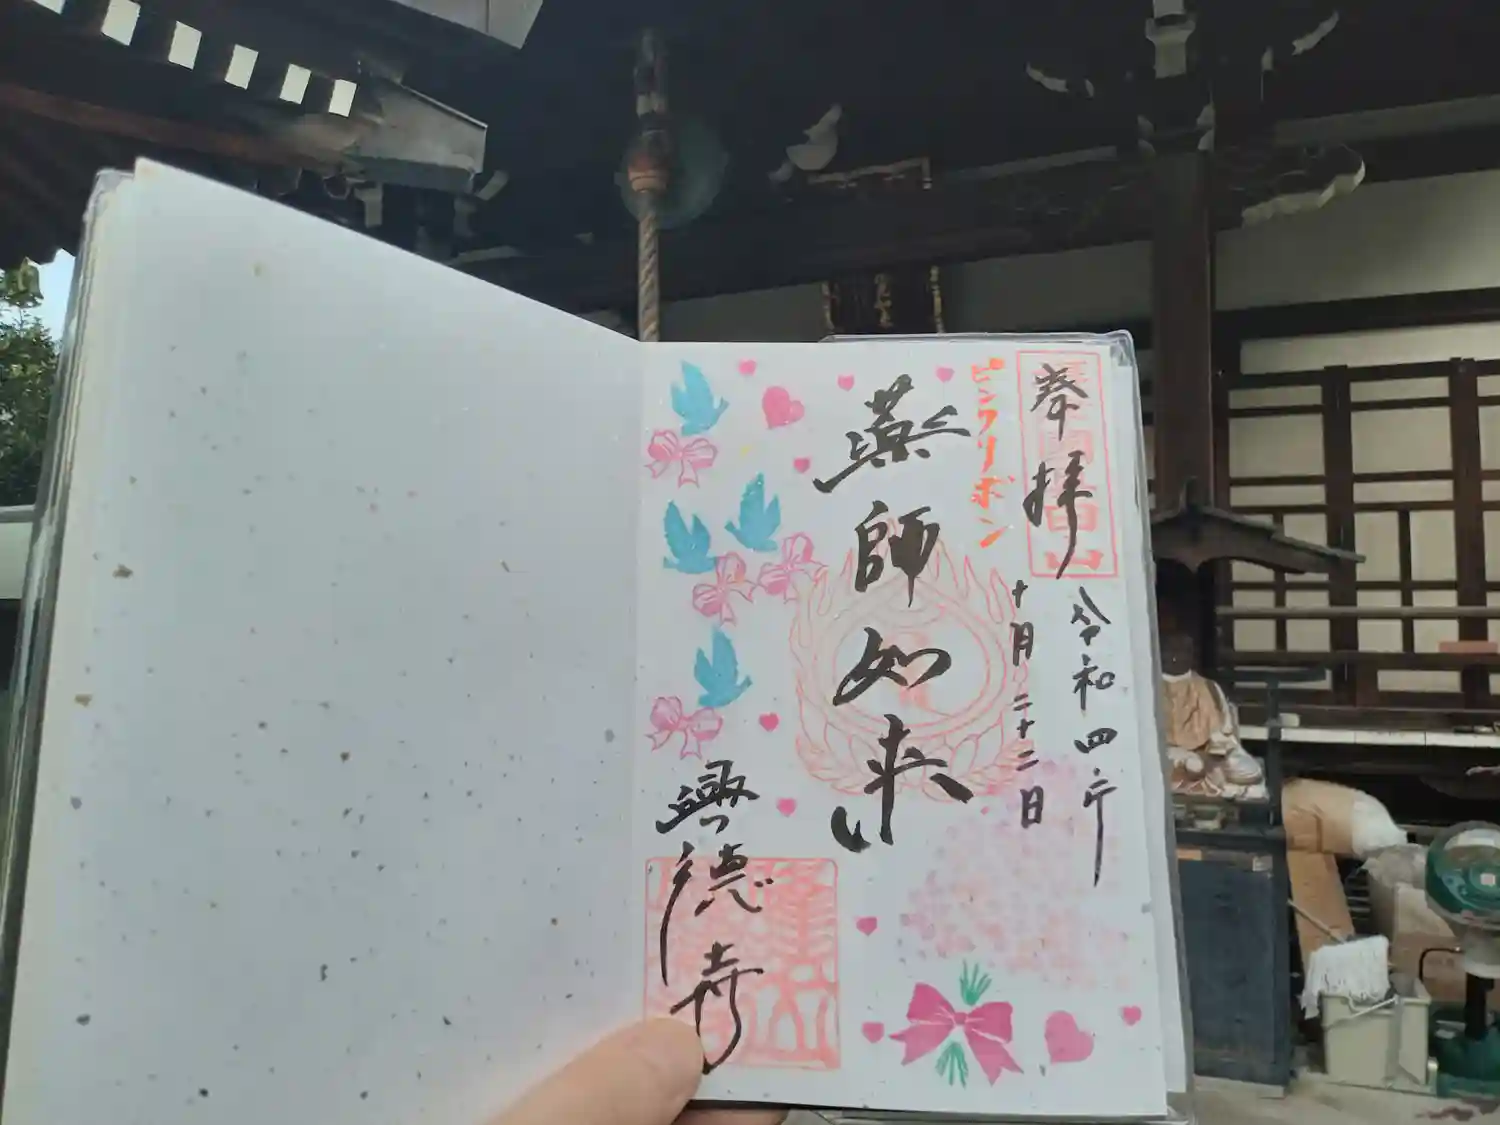 奉拝
令和四年
十月二十二日
ピンクリボン
薬師如来
興徳寺